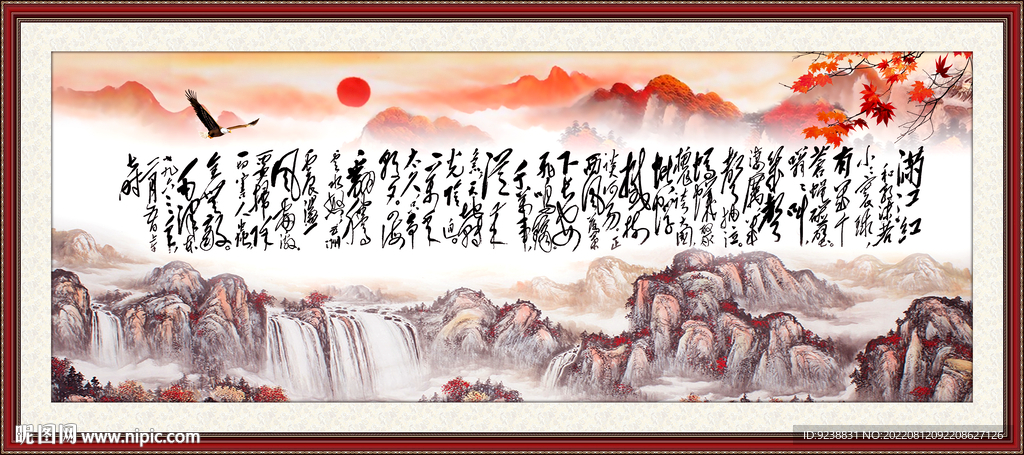 满江红
和郭沫若
小小寰球
有几个
苍蝇碰壁
嗡嗡叫
几声
凄厉几
声抽泣
蚂蚁缘
槐夸大国
蚍蜉
撼树
谈何易正
西风落叶
下长安
飞鸣镝
从来
急天地转
光阴迫
一万年
太久只争
朝夕四海
翻腾
云水怒五洲
震荡
风雷激
要扫除
一切害人虫
全无敌
毛泽东
一九六三年
昵图网 www.nipic.com
ID:9238831 NO:20220812092208627126